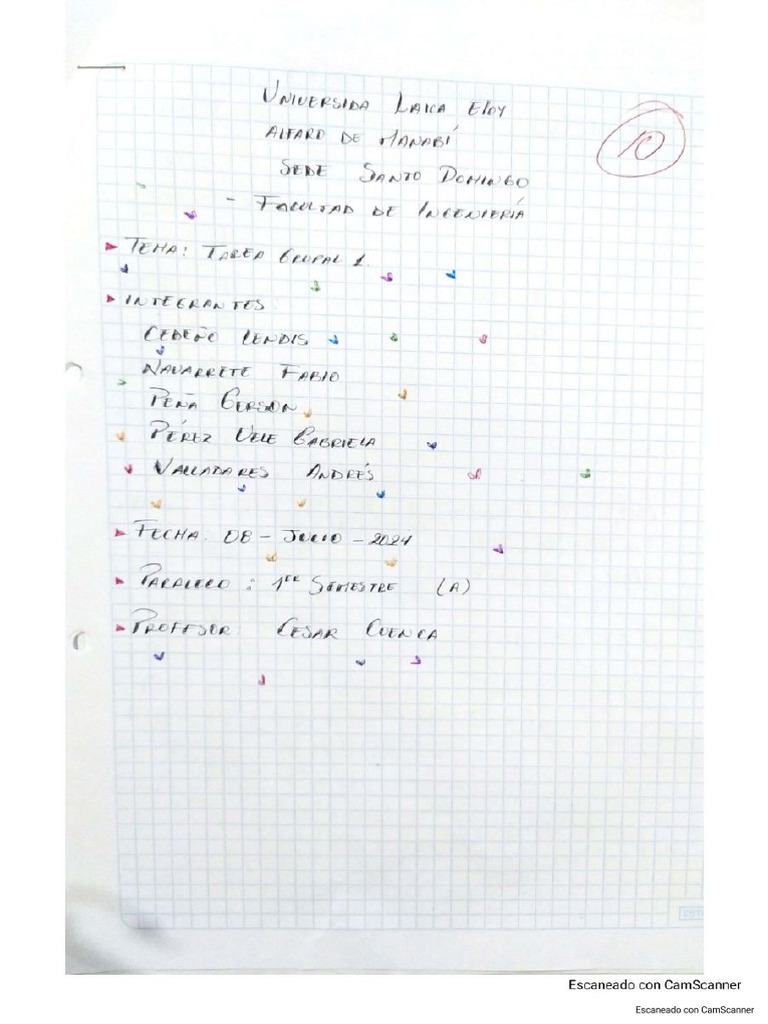 UNIVERSIDA LAICA ELOY
ALFARO DE MANABÍ
SEDE SANTO DOMINGO
- FACULTAD DE INGENIERÍA
10
TEMA: TAREA GRUPAL 1.
INTEGRANTES
CEDEÑO LENDIS
NAVARRETE FABIO
PEÑA GERSON
PÉREZ VELE GABRIELA
VALLADARES ANDRÉS
FECHA: 08 - JULIO - 2024
PARALELO : 1ER SEMESTRE (A)
PROFFSOR: CESAR CUENCA
Escaneado con CamScanner
Escaneado con CamScanner